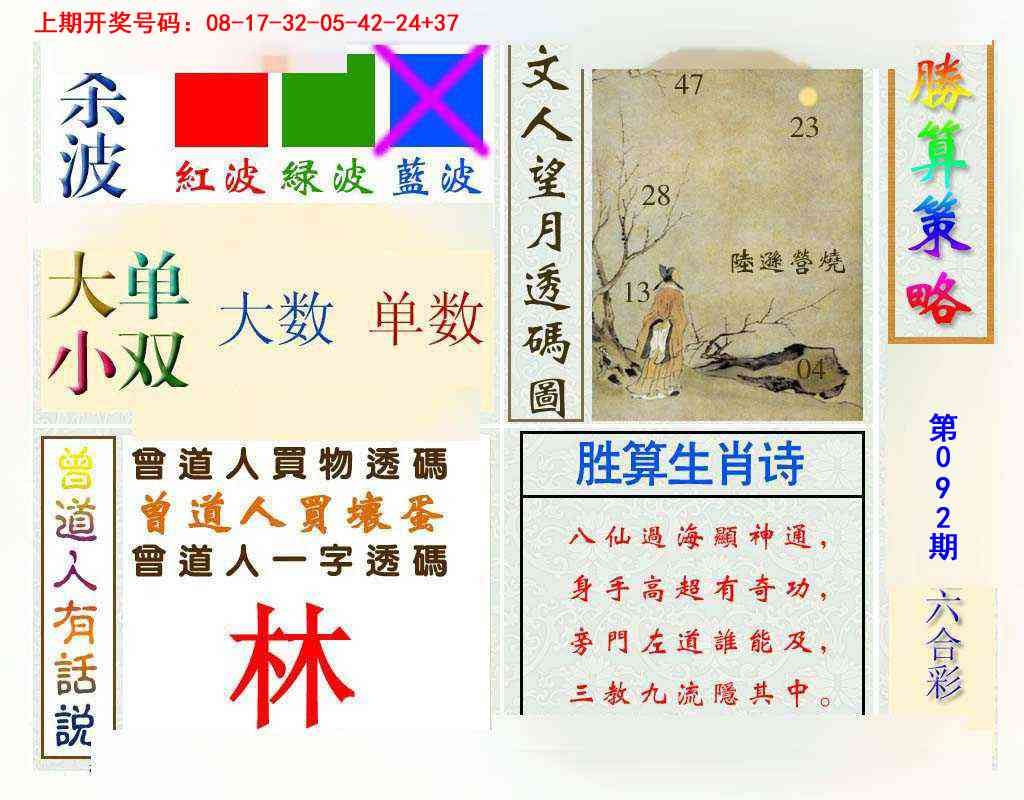 上期开奖号码：08-17-32-05-42-24+37
杀波
紅波 绿波 藍波
大单
小双
大数 单数
文人望月透碼圖
47
23
28
陸遜營燒
13
04
勝算策略
第092期
六合彩
曾道人有話説
曾道人買物透碼
曾道人買壞蛋
曾道人一字透碼
林
胜算生肖诗
八仙過海顯神通，
身手高超有奇功，
旁門左道誰能及，
三教九流隱其中。